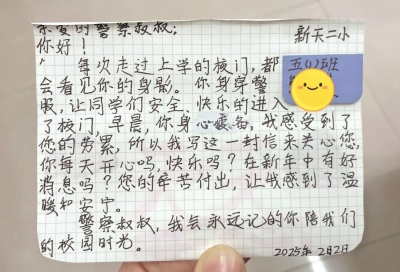 亲爱的警察叔叔:
新天二小
你好!
每次走过上学的校门,都
五(1)班
会看见你的身影。你身穿警
服,让同学们安全、快乐的进入
了校门,早晨,你身心疲惫,我感受到了
您的劳累,所以我写这一封信来关心您,
你每天开心吗,快乐吗?在新年中有好
消息吗?您的辛苦付出,让我感到了温
暖和安宁。
警察叔叔,我会永远记的你陪我们
的校园时光。
2025年2月2日